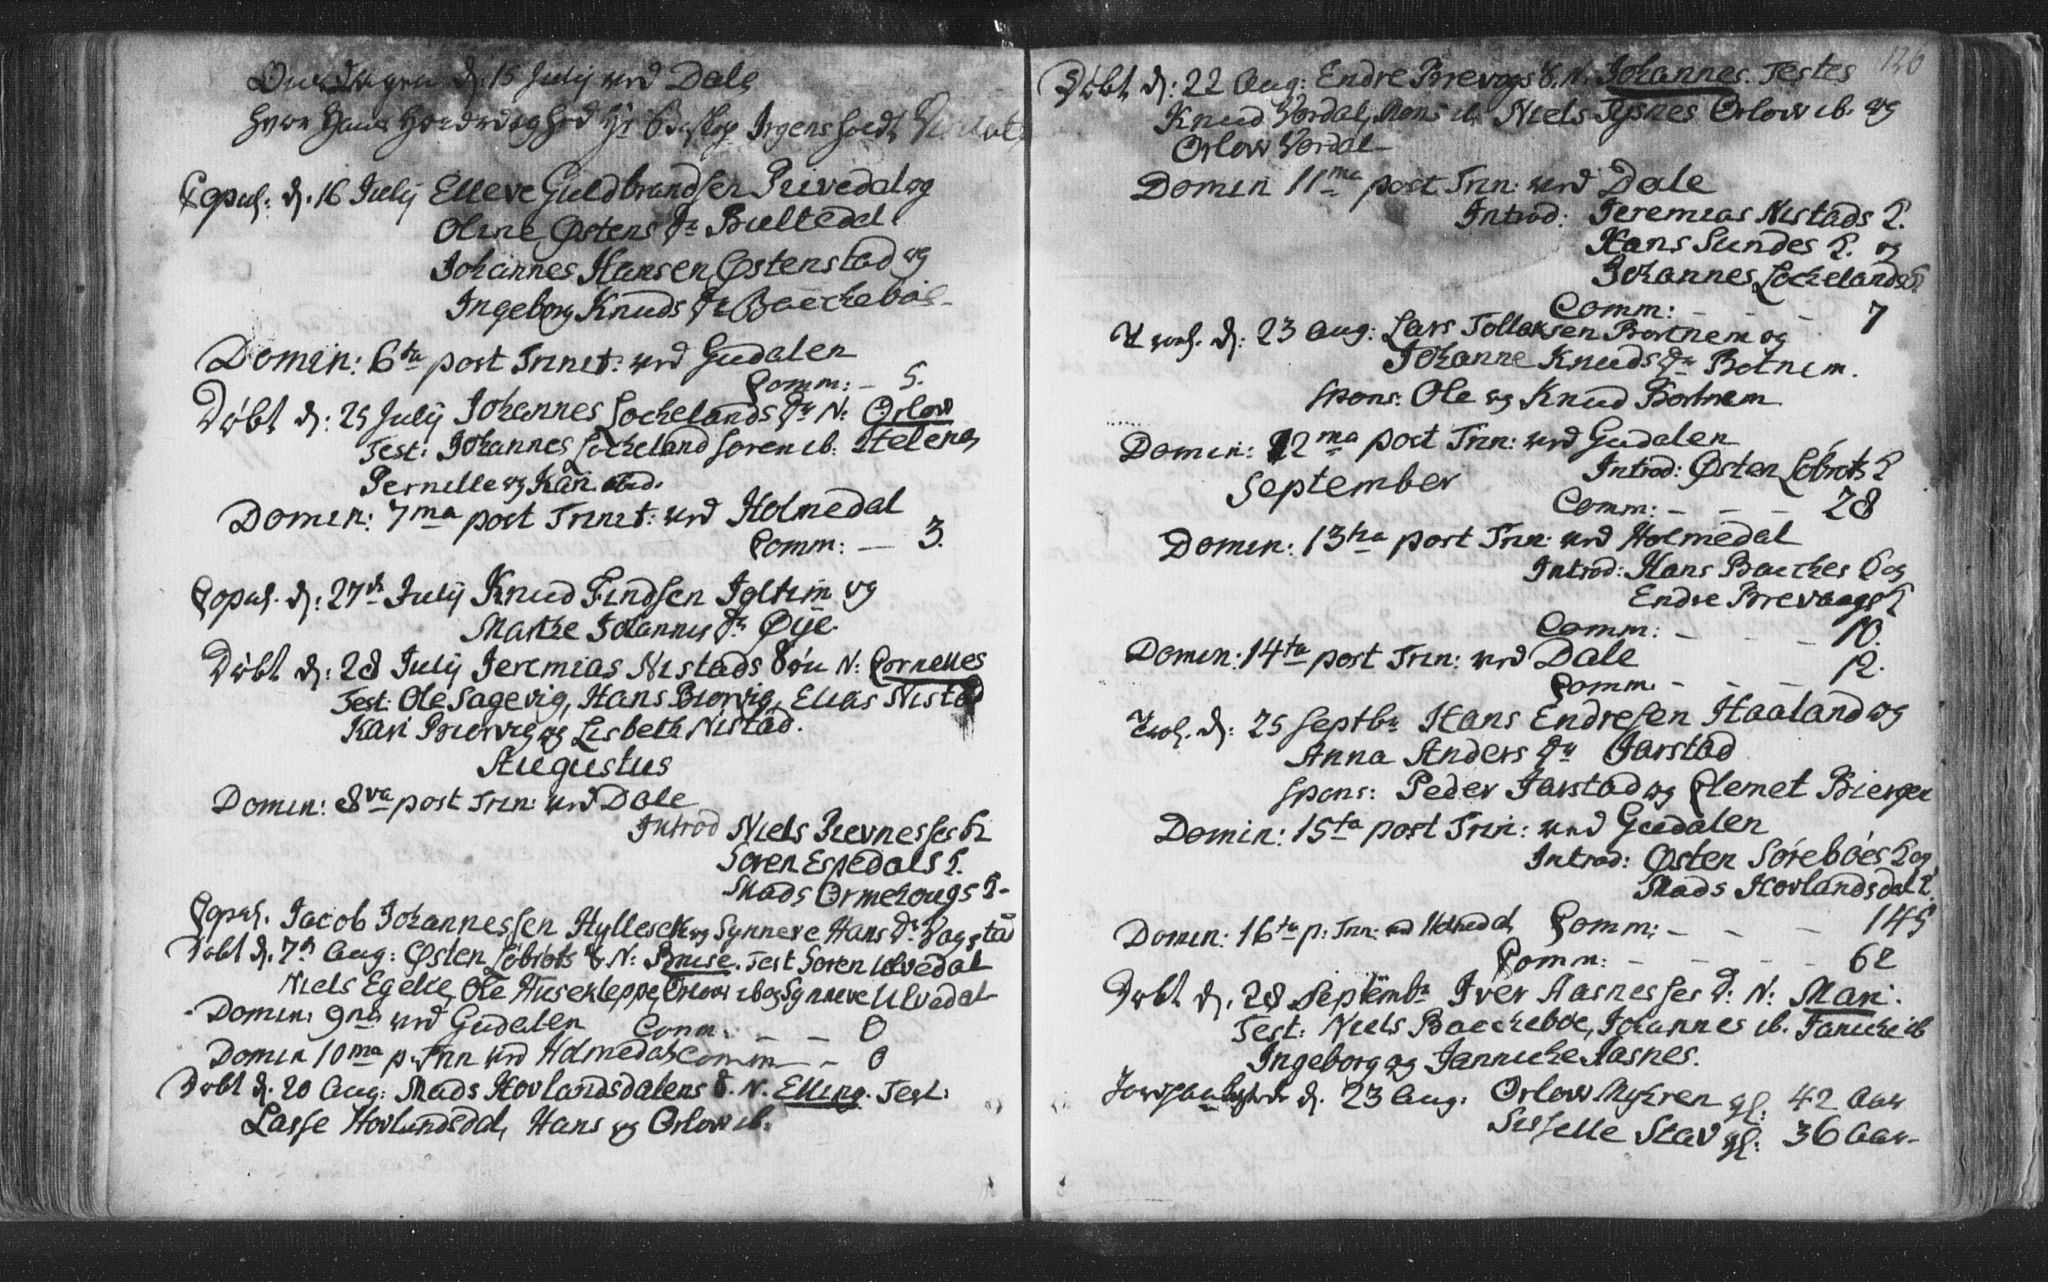 Onsdagen d: 15 Julij ved Dale
Herr Hans Høiædelhed Hr Biskop Irgens holdt Visitatz
Copul: d. 16 Julij Elleve Guldbrandsen Rivedal og
Oline Østens Dr Bultedal
Johannes Hansen Østenstad og
Ingeborg Knuds Dr Baecheboe
Domin: 6ta post Trinit: ved Gudalen
Comm: – 5.
Døbt d: 25 Julij Johannes Lochelands Dr N: Orlow
Test: Johannes Locheland Soren ib. Helena
Pernille og Kari ibid.
Domin: 7ma post Trinit: ved Holmedal
Comm: – 3.
Copul. d: 27de Julij Knud Findsen Igltim og
Marthe Johannes Dr Øye.
Døbt d: 28 Julij Jeremias Nistads Søn N: Cornelles
Test: Ole Sagevig, Hans Biervig, Elias Nistad
Kari Biervig og Lisbeth Nistad.
Augustus
Domin: 8va post Trin: ved Dale
Introd Niels Rievnesses h
Soren Espedals h.
Mads Ormehougs h.
Copul. Jacob Johannessen Hylleseth og Synneve Hans Dr Vagstad
Døbt d. 7de Aug: Østen Løbrots S N: Bruse. Test Soren Ulvedal
Niels Egelie, Ole Huseklepp, Orlow ib og Synneve Ulvedal
Domin: 9na ved Gudalen Comm: – – 0
Domin 10ma p. Trin ved Holmedal Comm – – 0
Døbt d. 20 Aug: Mads Hovlandsdalens S. N. Elling. Test:
Lasse Hovlandsdal, Hans og Orlow ib.
126
Døbt d: 22 Aug: Endre Brevogs S. N. Johannes. Testes
Knud Vordal, Mons ib. Niels Tysnes Orlow ib. og
Orlow Vordal
Domin 11ma post Trin: ved Dale
Introd: Jeremias Nistads h.
Hans Sundes h. og
Johannes Lochelands h.
Comm: – – – 7
Trol. d: 23 Aug: Lars Tollaksen Bortnem og
Johanne Knuds Dr Botnem.
Spons: Ole og Knud Bortnem
Domin: 12ma post Trin: ved Gudalen
Introd: Østen Løbrots h
September
Comm: – – – 28
Domin: 13tia post Trin: ved Holmedal
Introd: Hans Baeches h og
Endre Brevaags h
Comm: – – – 10.
Domin: 14ta post Trin: ved Dale
Comm – – – 12.
Trol. d: 25 Septbr Hans Endresen Haaland og
Anna Anders Dr Jarstad
Spons: Peder Jarstad og Clemet Bierge
Domin: 15ta post Trin: ved Gudalen
Introd: Østen Søreboes h og
Mads Hovlandsdal h.
Comm: – – – 145
Domin: 16ta p: Trin: ved Holmedal
Comm: – – – 62
Døbt d. 28 Septembr Iver Aasnesses D: N: Mari.
Test: Niels Baecheboe, Johannes ib. Janiche ib
Ingeborg og Jannicke Aasnes.
Jordfæstede d. 23 Aug: Orlow Myhren gl: 42 Aar
Sisselle Stav gl: 36 Aar